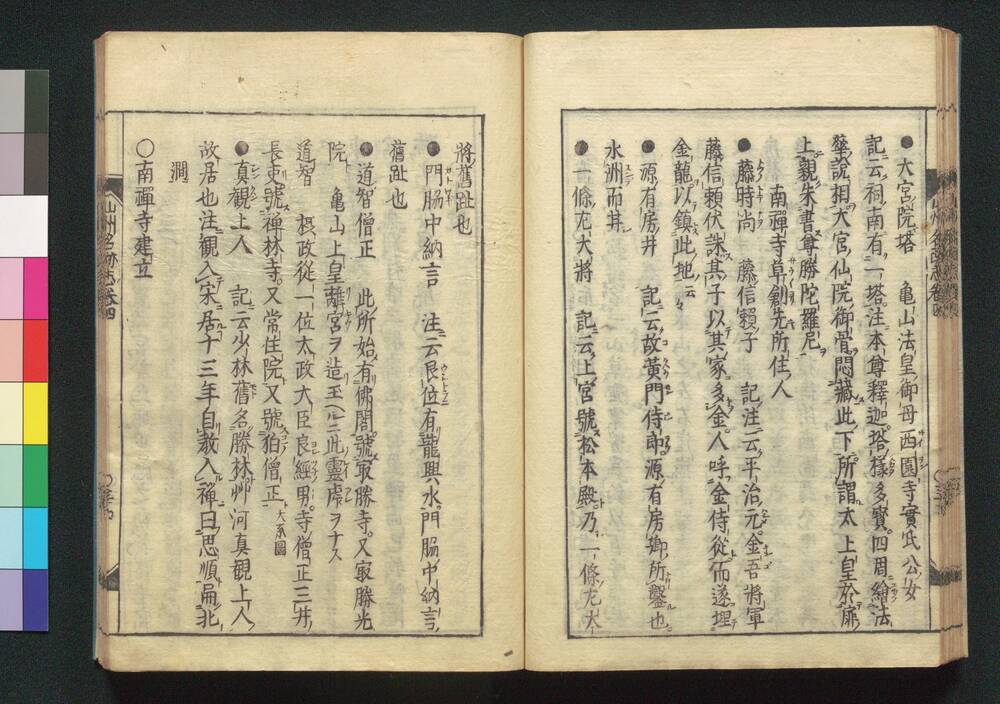 ●大宮院塔　亀山法皇御母西園寺實氏公女
記云祠南有一塔注本尊釋迦塔様多寶四周繪法
華説相大宮仙院御骨悶藏此下所謂太上皇於扉
上親朱書尊勝陀羅尼
南禪寺草創先所住人
●藤時尚　藤信頼子　記注云平治元金吾將軍
藤信頼伏誅其子以其家多金人呼金侍從而遂埋
金龍以鎮此地云々
●源有房井　記云故黄門侍郎源有房郷所鑿也
永洲而井
●一條左大將　記云上官號松本殿乃一條左大
將舊趾也
●門脇中納言　注云艮位有龍興水門脇中納言
舊趾也
●道智僧正　此所始有佛閣號冣勝寺又冣勝光
院　亀山上皇離宮ヲ造玉ヘル此靈處ヲナス
道智　根政從一位太政大臣良經男寺僧正三井
長吏號禪林寺又常住院又號狛僧正大系圖
●真観上人　記云少林舊名勝林艸河真観上人
故居也注観入宋居十三年自教入禪曰思順扁北
澗
○南禪寺建立
山州名跡志巻四